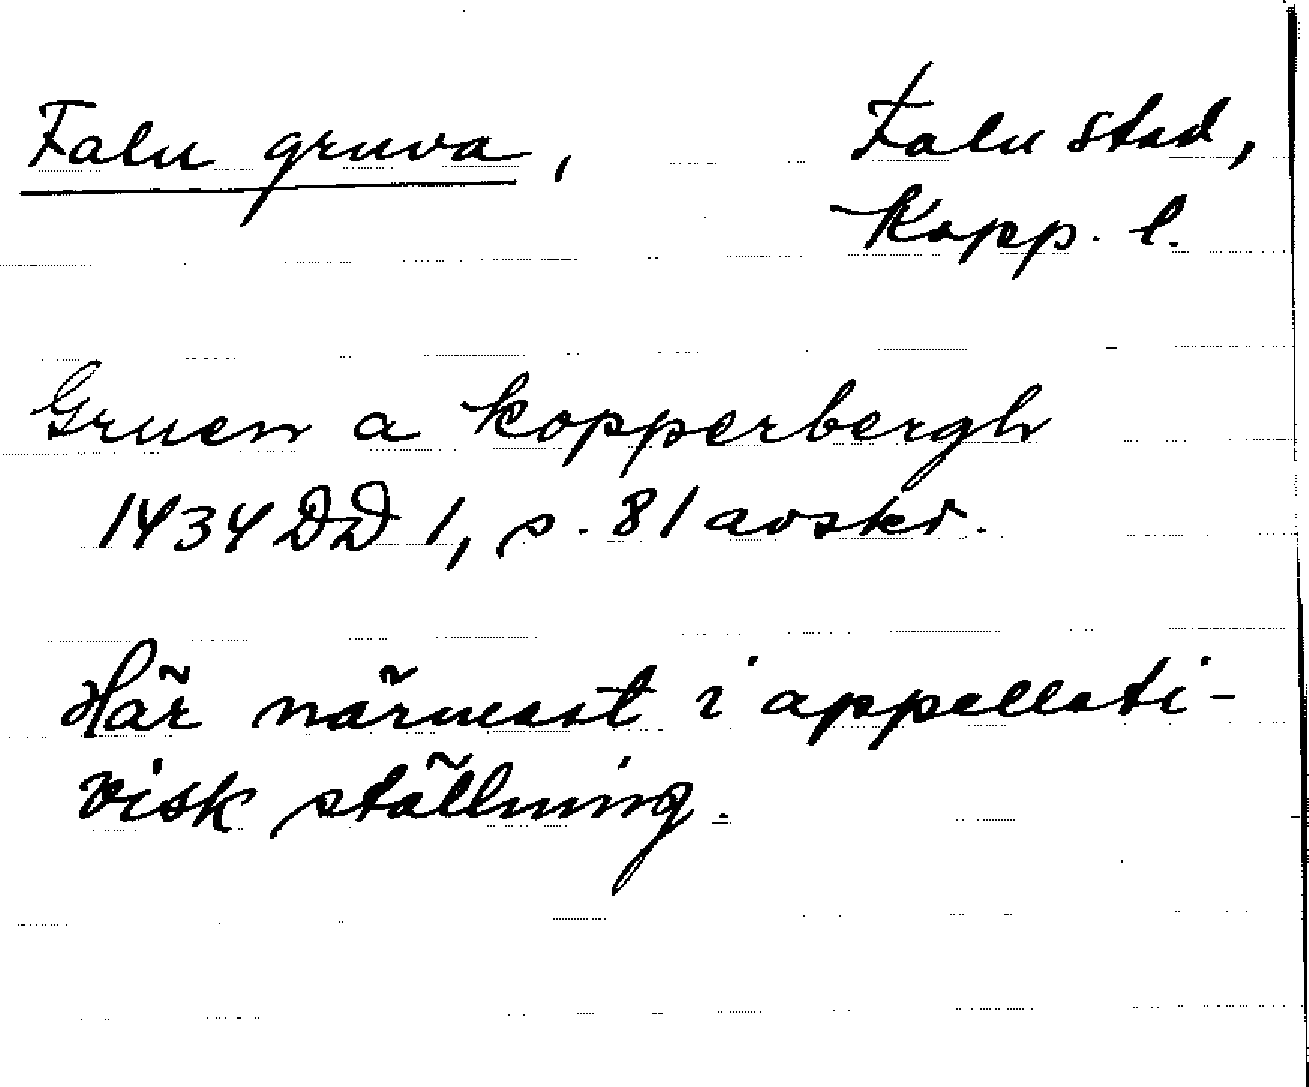 Falu gruva, Falu stad,
Kopp. l.
Gruen a kopperbergh
1434 DD 1, s. 81 avskr.
Här närmast i appellati-
visk ställning.